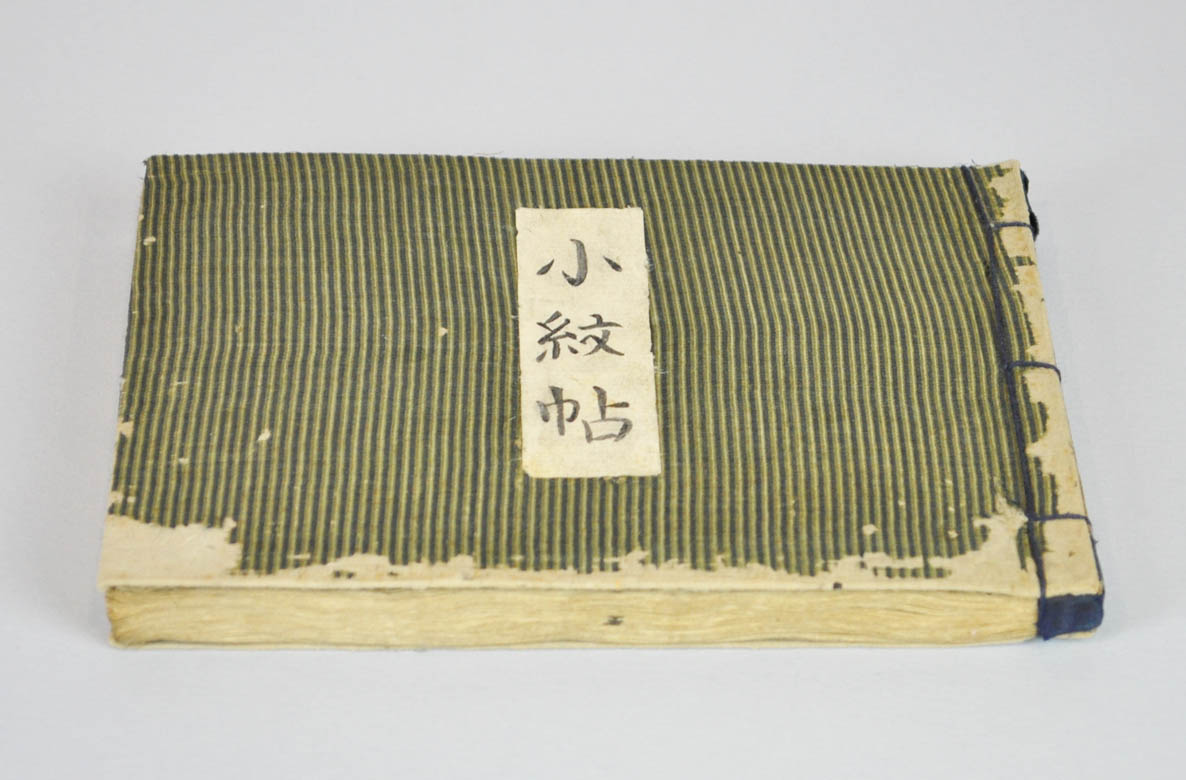 小紋帖